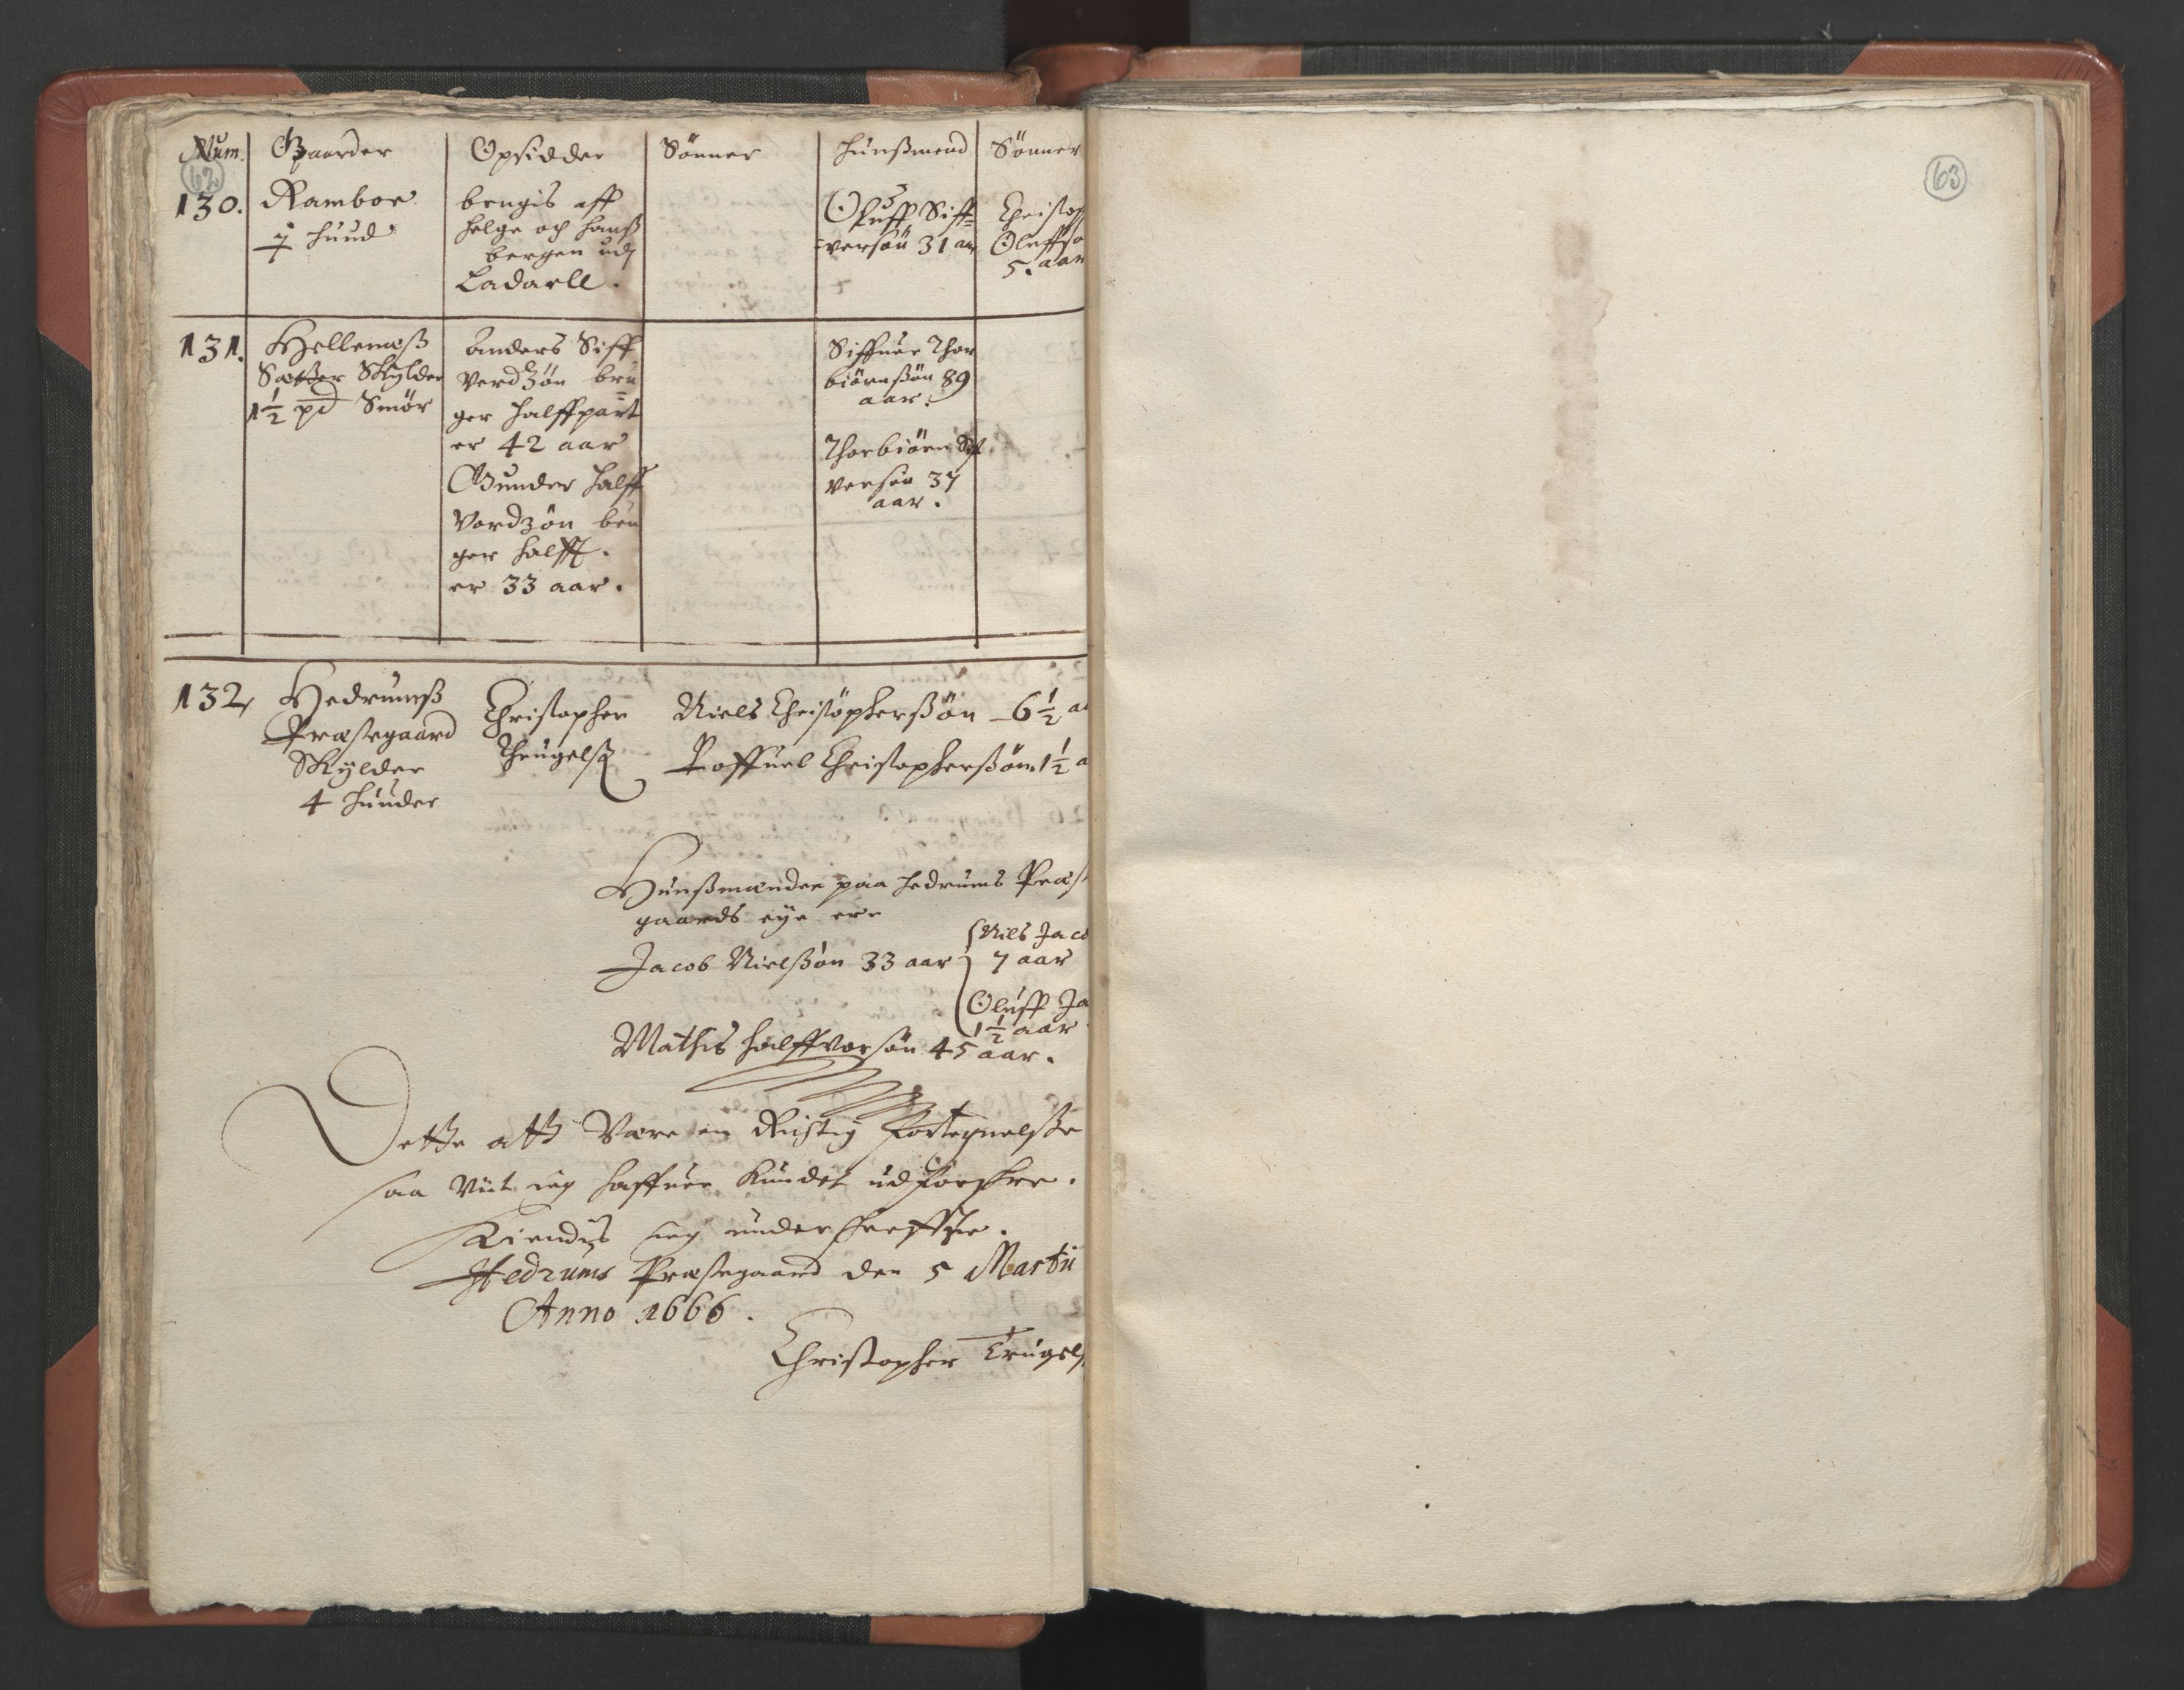 Num. Gaarder Opsidder Sönner Huußmend Sönner
62
130. Ramboe
1 huud
brugis aff
helge och hans
bergen udj
Ladarll.
Oluff Siff=
=versön 31 aar
Christop
Oluffsø
5. aar
131. Hellenæß
Sætter Skylder
1½ pd Smör
Anders Siff
verdzön bru=
ger halffpart
er 42 aar
Gunder Halff
vordzön bru
ger halfft.
er 33 aar.
Siffuer Thor
biörnßön 89
aar.
Thorbiörn Sif
versön 37
aar.
132, Hedrumß
Præstegaard
Skylder
4 huuder
Christopher
Thrugelß
Niels Christöpherßön - 6½ a
Poffuel Christopherßön 1½ a
Huußmænder paa Hedrums Præst
gaards eye ere
Jacob Nielßön 33 aar
Niels Jaco
7 aar
Oluff Ja
1½ aar
Mathis Halffvorsön 45 aar.
Dette att Være en Rigtig Fortegnelße
saa Viit ieg haffuer kundet udforske.
Kiendis ieg underskreffne.
Hedrums Præstegaard den 5 Martii
Anno 1666.
Christopher Trugels
63